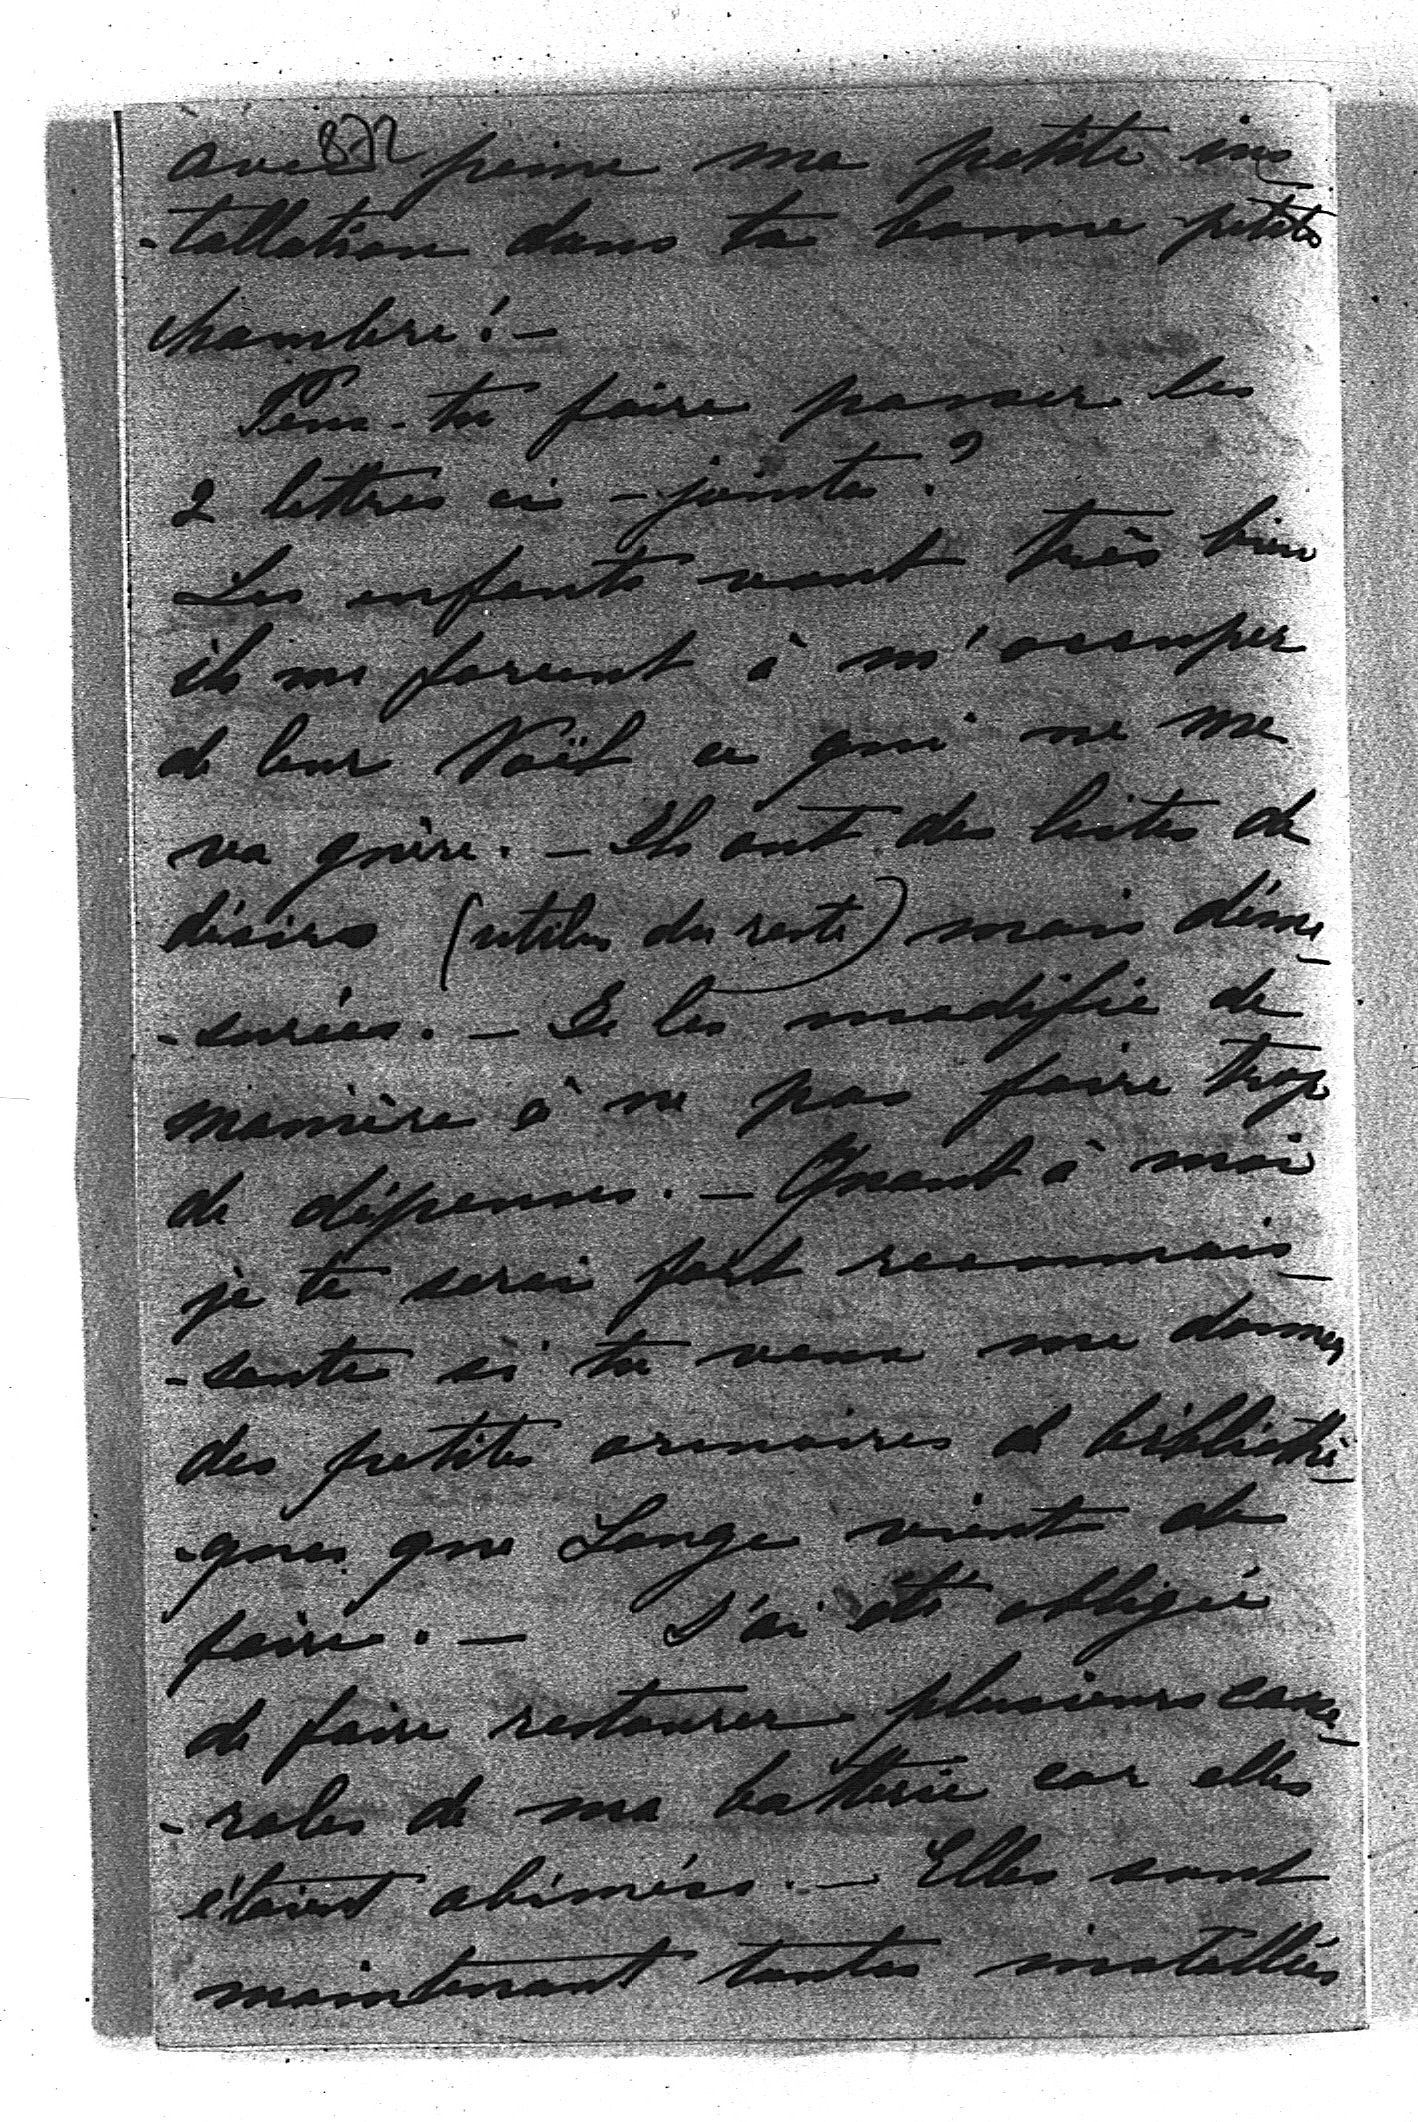 872
avec peine ma petite ins_
-tallation dans ta bonne petite
chambre! -
Peux-tu faire passer les
2 lettres ci-jointes?
Les enfants vont très bien
ils me forcent à m'occuper
de leur Noël ce qui ne me
va guère. - Ils ont des listes de
désirs (utiles du reste) mais déme_
-surées. - Je les modifie de
manière à ne pas faire trop
de dépenses. - Quant à moi
je te serai fort reconnais_
-sante si tu veux me donner
des petites armoires et bibliothè_
-ques que Lange vient de
faire. - J'ai été obligée
de faire restaurer plusieurs casse_
-roles de ma batterie car elles
étaient abimées. - Elles sont
maintenant toutes installées